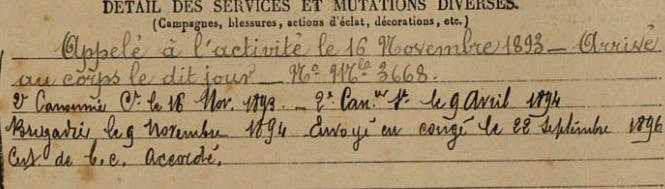 DÉTAIL DES SERVICES ET MUTATIONS DIVERSES.
(Campagnes, blessures, actions d'éclat, décorations, etc.)
Appelé à l'activité le 16 Novembre 1893 — Arrivé
au corps le dit jour — No Mle 3668.
2e Canonnier Ct le 16 Nov. 1893. — 2e Canier St le 9 Avril 1894
Brigadier le 9 Novembre 1894 Envoyé en congé le 22 Septembre 1896
Cert de b. c. Accordé.